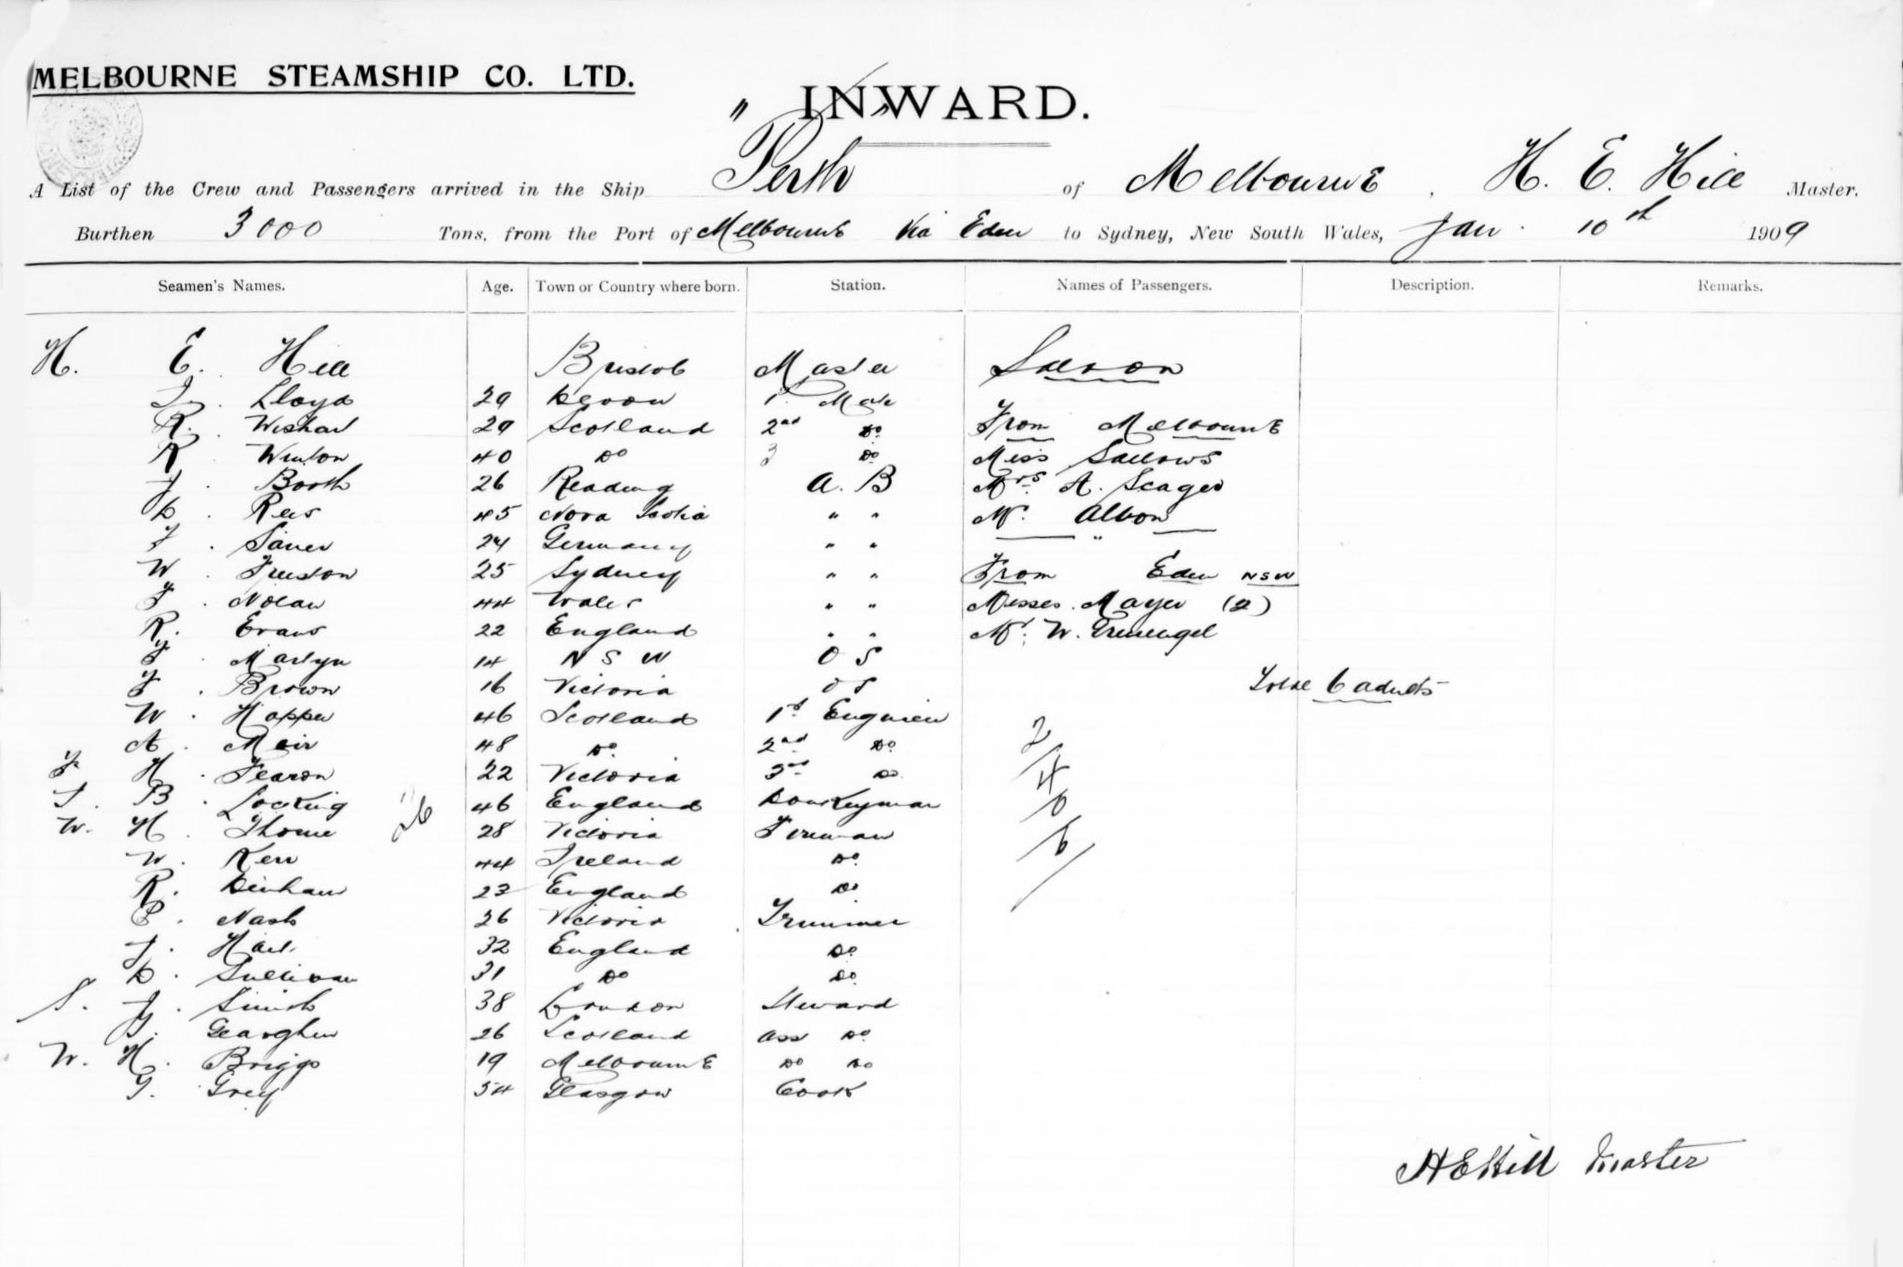 MELBOURNE STEAMSHIP CO. LTD.
" INWARD. "
A List of the Crew and Passengers arrived in the Ship Perth of Melbourne, H. E. Hill Master.
Burthen 3000 Tons, from the Port of Melbourne Via Eden to Sydney, New South Wales, Jan. 10th 1909
Seamen's Names. Age. Town or Country where born. Station. Names of Passengers. Description. Remarks.
H. E. Hill Bristol Master Saloon
Lloyd 29 Devon 1st Mate
R. Wishart 29 Scotland 2nd Do From Melbourne
R Winton 40 Do 3 Do Miss Sallows
J. Booth 26 Reading A. B Mrs A. Seager
D. Rees 45 Nova Scotia " " Mr. Albon
J. Sauer 24 Germany " "
W. Freeston 25 Sydney " " From Eden NSW
J. Nolan 44 Wales " " Misses. Mayer (2)
R. Evans 22 England " " Mr. W.
J. Martyn 14 N S W O S
J. Brown 16 Victoria O S Total 6 adults
W. Happer 46 Scotland 1st Engineer
A. Meir 48 Do. 2nd Do 2
J H. Fearon 22 Victoria 3rd Do. 4
J. B. Locking 26 46 England Donkeyman 0
W. H. Thorne 28 Victoria Fireman 6
W. Kerr 44 Ireland Do.
R. Denham 23 England Do
P. Nash 26 Victoria Trimmer
J. Hart. 32 England Do
D. Sullivan 31 Do Do
S. J. Smith 38 London Steward
J. 26 Scotland Ass Do
W. H. Briggs 19 Melbourne Do Do
G. Grey 54 Glasgow Cook
H E Hill Master